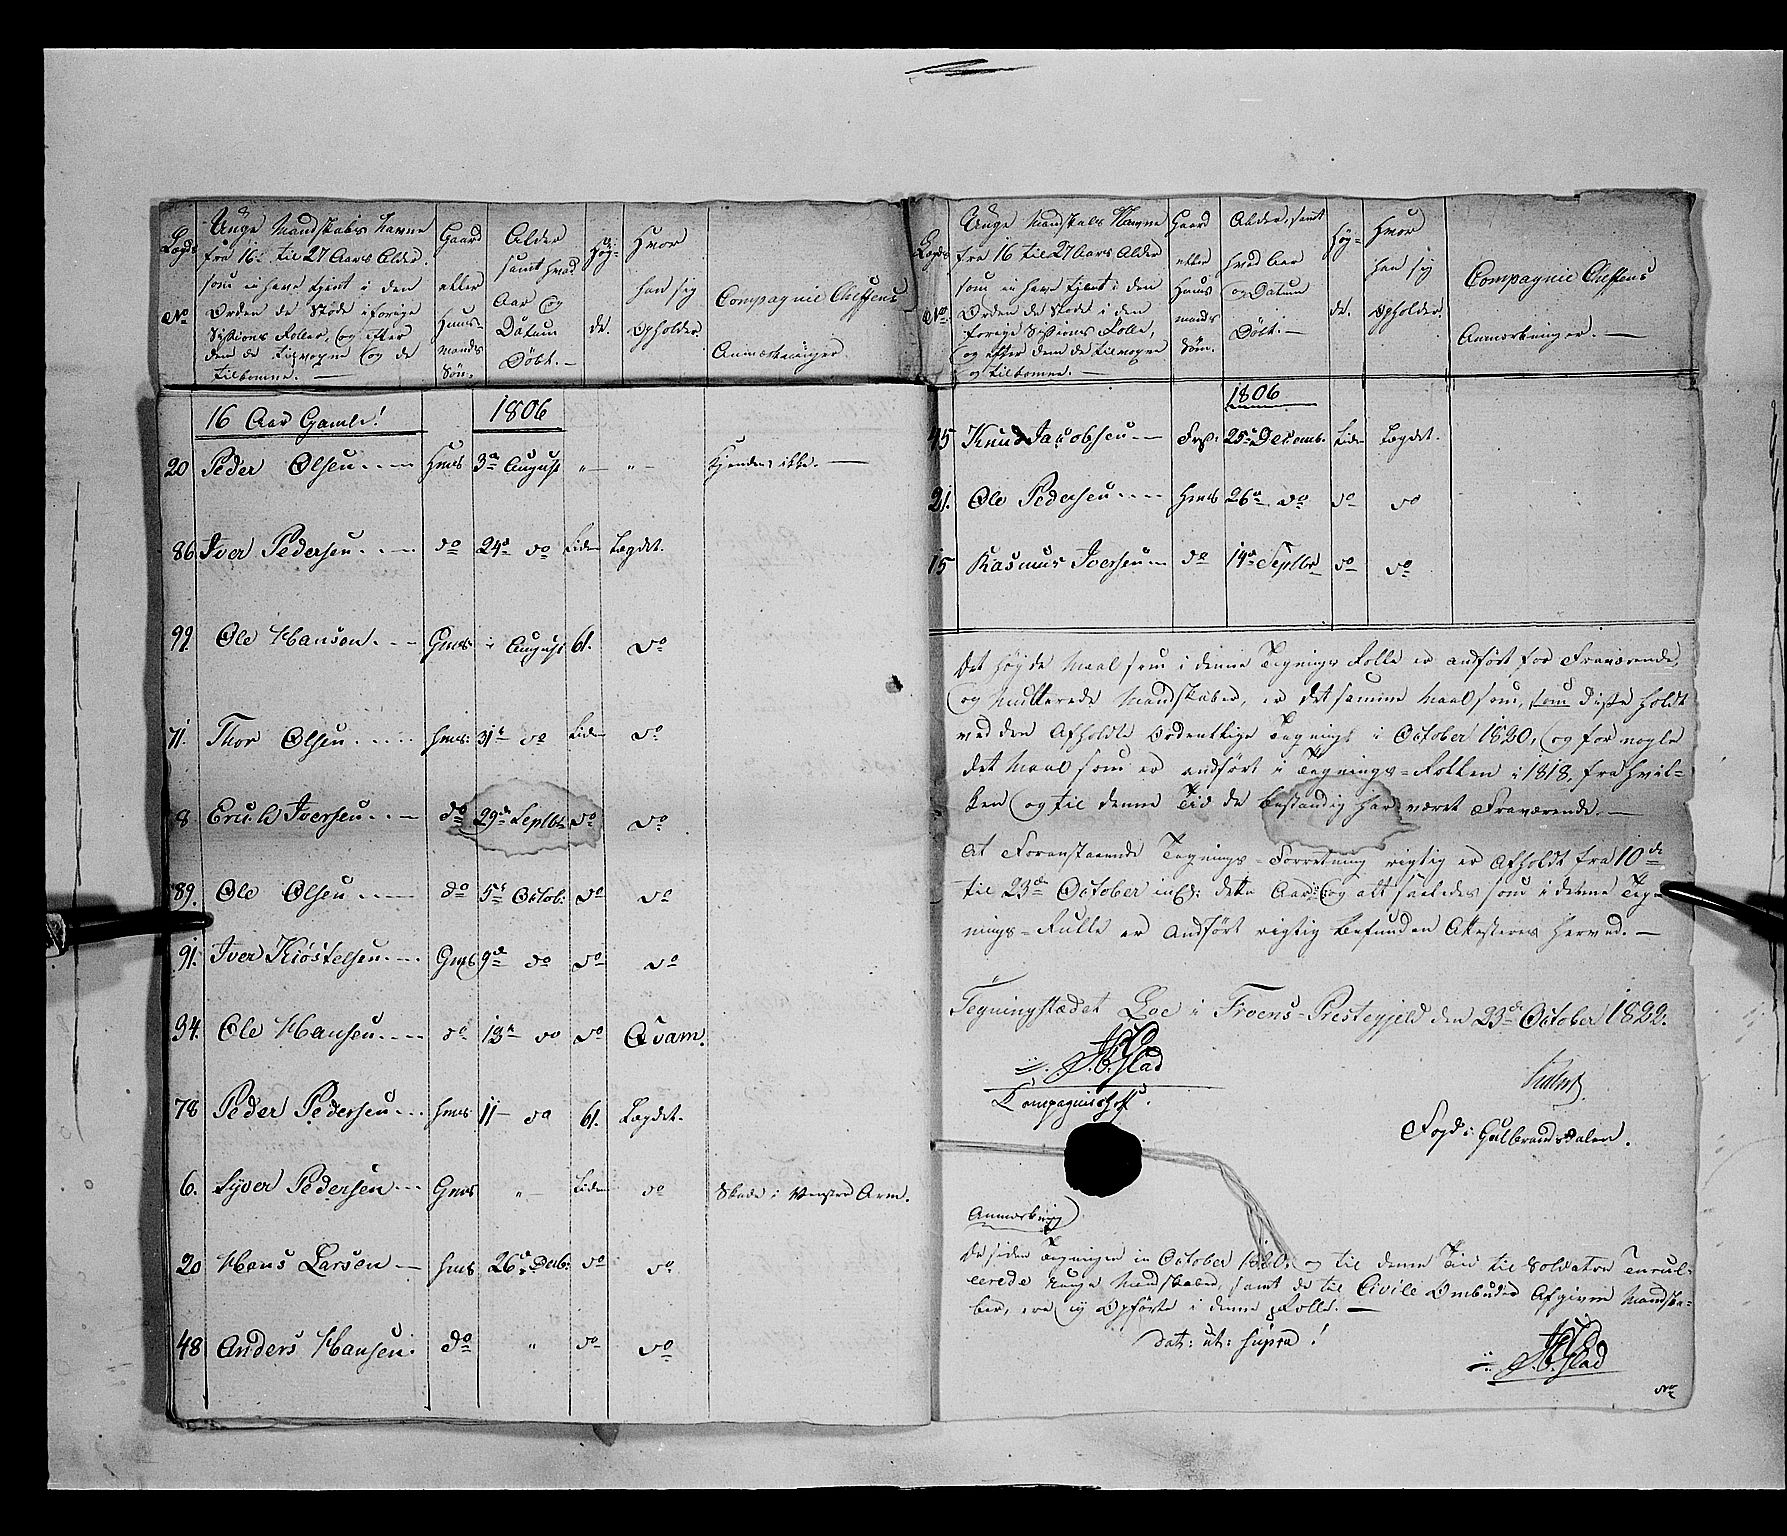 Lægds No
Unge Mandskabs Navne
fra 16 til 27 Aars Alder
som ei have tjent i den
Orden de Stode i forige
Sessions Roller, og efter
dem de tilvoxne og de
tilkomne. —
Gaard
eller
Huus-
mands
Søn.
Alder
samt hvad
Aar og
Datum
Døbt. —
Høy-
de.
Hvor
han sig
opholder.
Compagnie Cheffens
Anmærkninger.
16 Aar Gamle! 1806
20 Peder Olsen Hms 3die August " — " — Kjendes ikke. —
86 Iver Pedersen do 24de do Liden Lægdet.
99. Ole Hanson Gms i August 61. do
71. Thor Olsen Hms: 31te do Liden do
8 Iversen do 29de Septbr do do
89. Ole Olsen do 5te Octob: do do
91. Iver Kiøstelsen Gms 9de do do do
94. Ole Hansen do 13de do do Qvam.
78 Peder Pedersen Hms 11 — do 61. Lægdet.
6. Syver Pedersen Gms " — Liden do Skade i Venstre Arm.
20 Hans Larsen — Hms 26de Decb: do do
48 Anders Hansen. do " do do
Lægds No
Unge Mandskabs Navne
fra 16 til 27 Aars Alder
som ei have tjent i den
Orden de Stode i den
forige Sessions Rolle,
og efter dem de tilvoxne
og tilkomne. —
Gaard
eller
Huus
mands
Søn.
Alder, samt
hvad Aar
og Datum
Døbt. —
Høy-
de.
Hvor
han sig
opholder.
Compagnie Cheffens
Anmærkninger. —
1806
45 Knud Jacobsen — 25de Decemb. Liden Lægdet.
21. Ole Pedersen Hms 26de do do do
15 Rasmus Iversen do 14de Septbr do do
Det høyde Maal som i denne Tegnings Rolle er andført for Fraværende,
og Mandskaber, er det samme Maal som, som disse holdt
ved den Afholdte Ordentlige Tegning i October 1820, og for nogle
det Maal som er andført i Tegnings-Rollen i 1818, fra hvil-
ken og til denne Tid de bestandig har været Fraværende. —
At Foranstaaende Tegnings-Forretning rigtig er Afholdt fra 10de
til 23de October incl: dette Aar; og alt saaledes som i denne Teg-
nings-Rulle er Andført rigtig befunden Attesteres herved. —
Tegningstædet Loe i Froens-Prestegjeld den 23de October 1822.
Fogd i Gulbrandsdalen.
Anmærkning
De siden Tegningen in October 1820 og til denne Tid til Soldater Enrul-
lerede unge Mandskaber, samt de til Civile Ombuder Afgivne Mandska-
ber, ere ey Opførte i denne Rolle. —
dat: ut: supra!